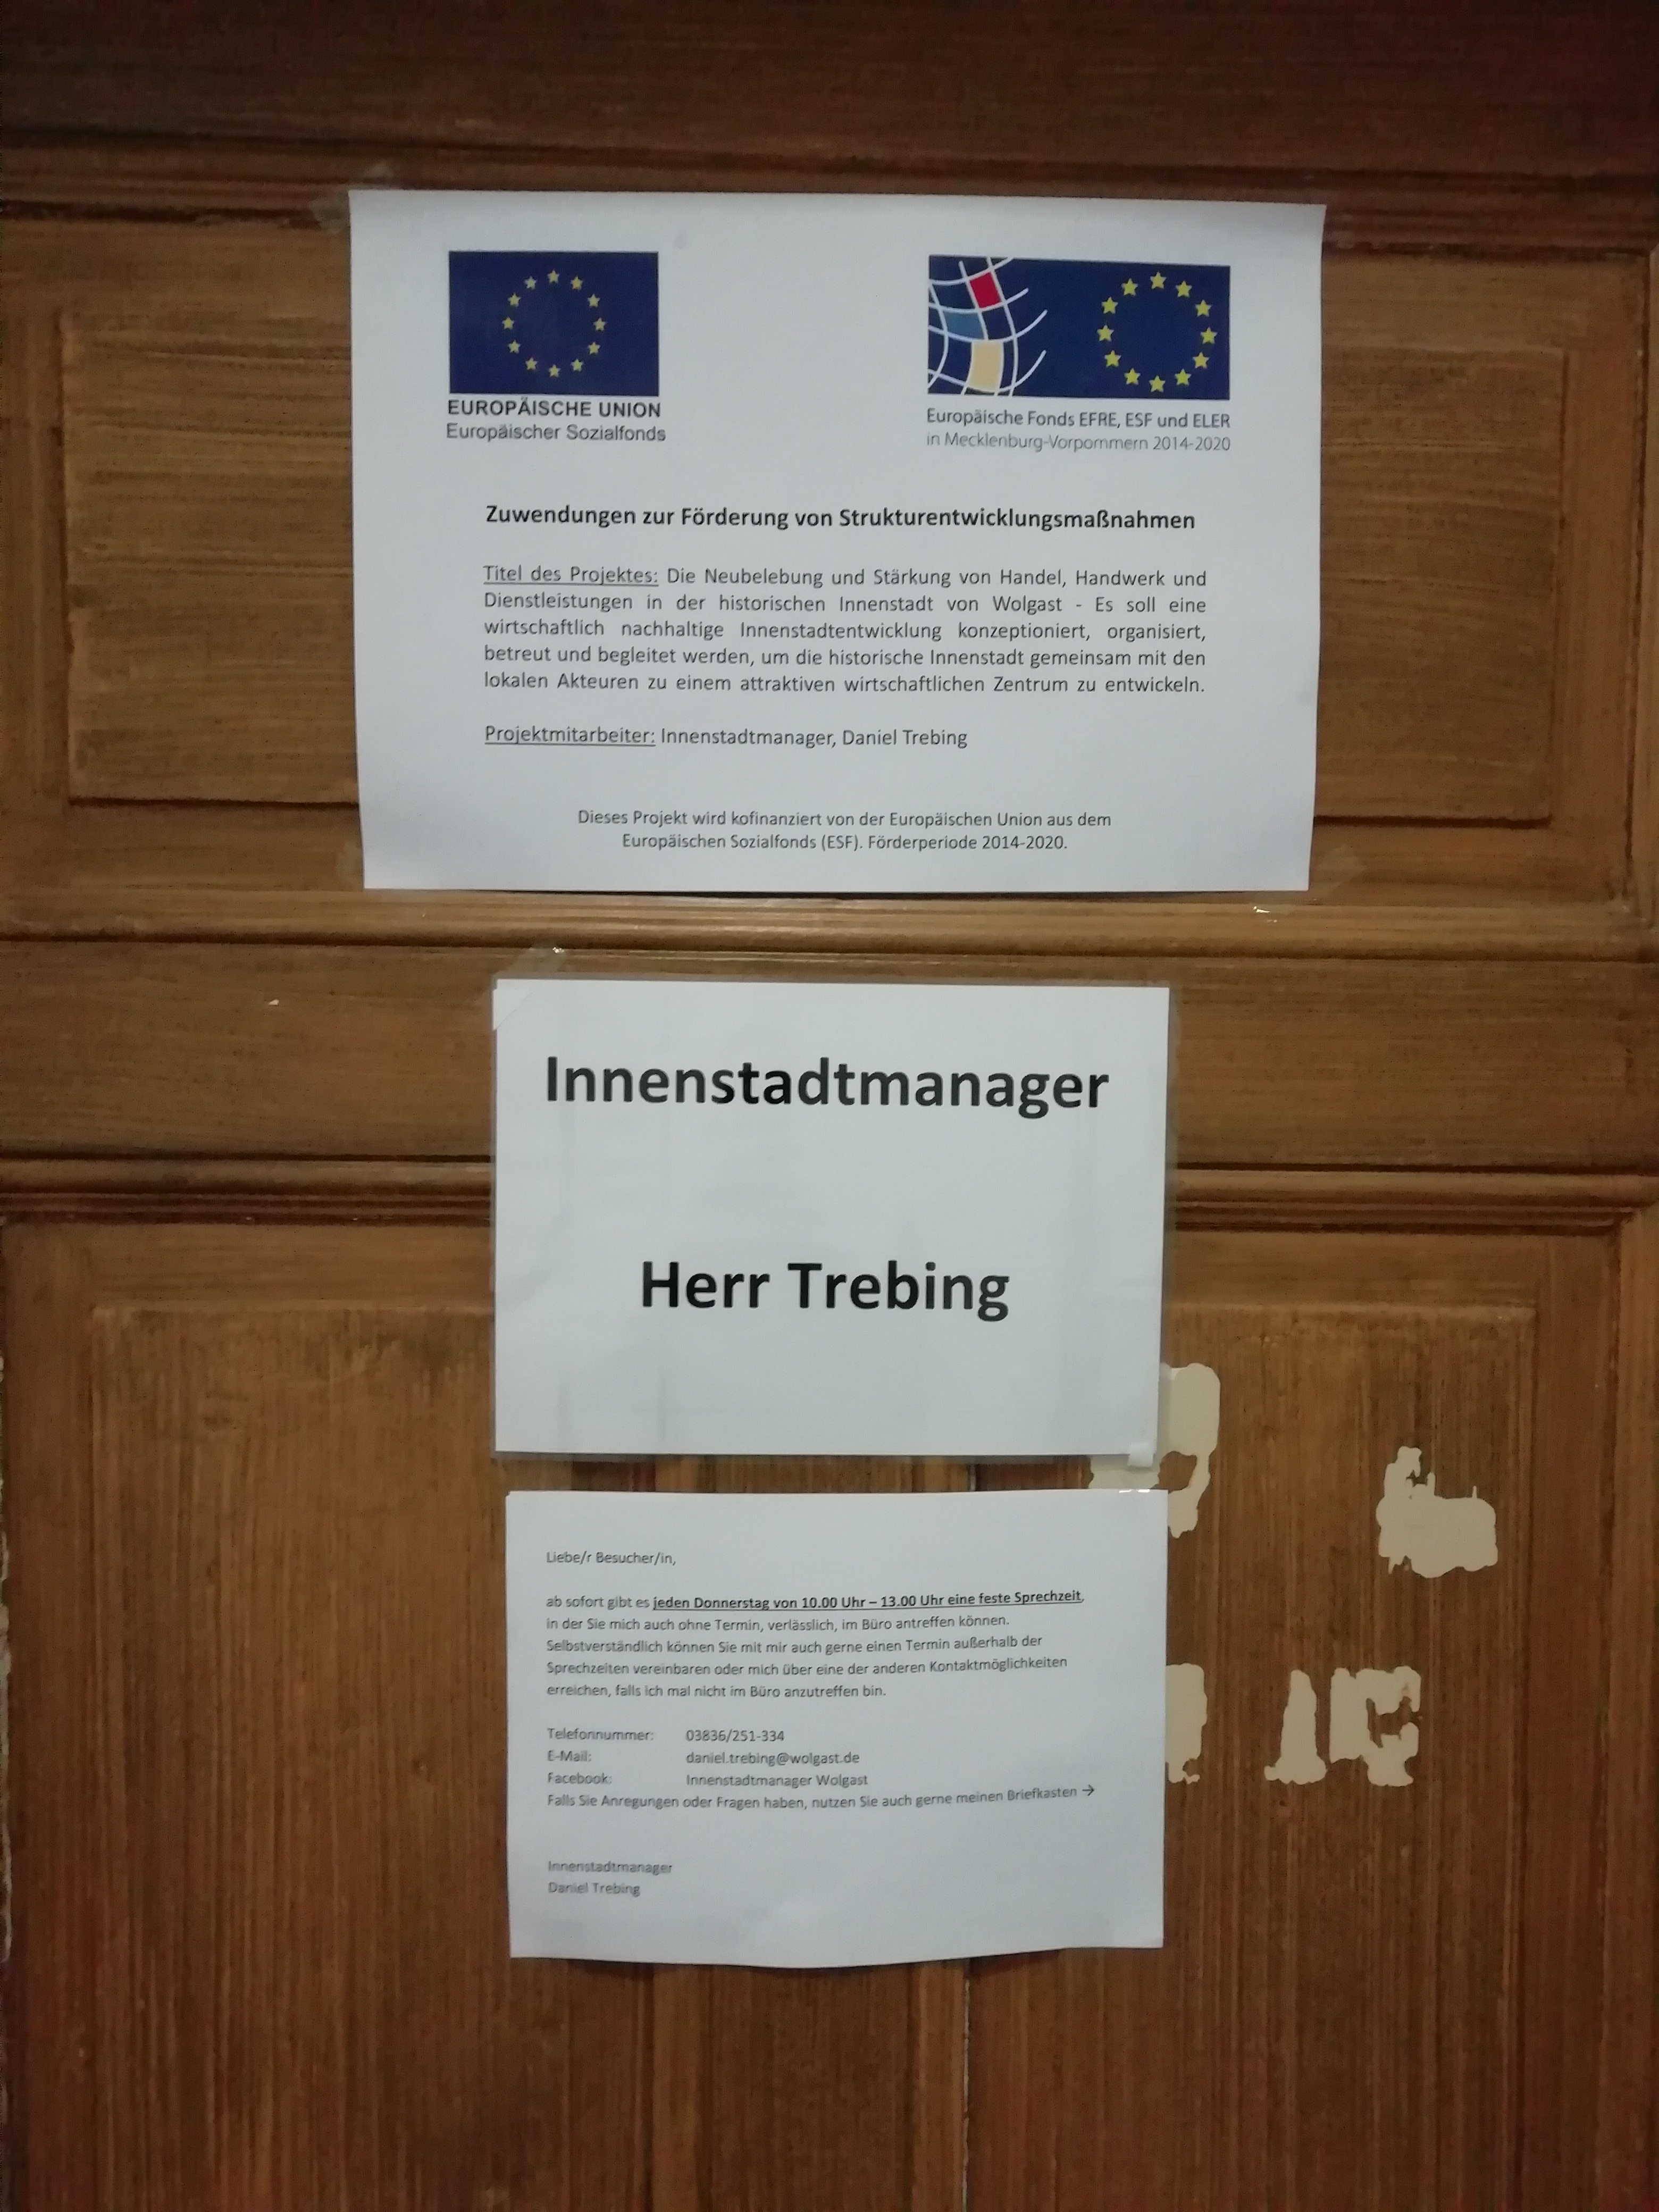 EUROPÄISCHE UNION
Europäischer Sozialfonds
Europäische Fonds EFRE, ESF und ELER
in Mecklenburg-Vorpommern 2014-2020
Zuwendungen zur Förderung von Strukturentwicklungsmaßnahmen
Titel des Projektes: Die Neubelebung und Stärkung von Handel, Handwerk und
Dienstleistungen in der historischen Innenstadt von Wolgast - Es soll eine
wirtschaftlich nachhaltige Innenstadtentwicklung konzeptioniert, organisiert,
betreut und begleitet werden, um die historische Innenstadt gemeinsam mit den
lokalen Akteuren zu einem attraktiven wirtschaftlichen Zentrum zu entwickeln.
Projektmitarbeiter: Innenstadtmanager, Daniel Trebing
Dieses Projekt wird kofinanziert von der Europäischen Union aus dem
Europäischen Sozialfonds (ESF). Förderperiode 2014-2020.
Innenstadtmanager
Herr Trebing
Liebe/r Besucher/in,
ab sofort gibt es jeden Donnerstag von 10.00 Uhr – 13.00 Uhr eine feste Sprechzeit,
in der Sie mich auch ohne Termin, verlässlich, im Büro antreffen können.
Selbstverständlich können Sie mit mir auch gerne einen Termin außerhalb der
Sprechzeiten vereinbaren oder mich über eine der anderen Kontaktmöglichkeiten
erreichen, falls ich mal nicht im Büro anzutreffen bin.
Telefonnummer: 03836/251-334
E-Mail: daniel.trebing@wolgast.de
Facebook: Innenstadtmanager Wolgast
Falls Sie Anregungen oder Fragen haben, nutzen Sie auch gerne meinen Briefkasten →
Innenstadtmanager
Daniel Trebing